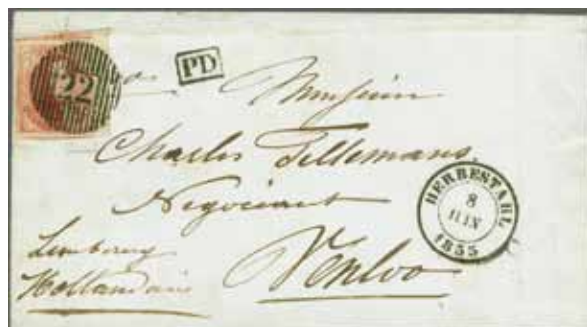 22
PD
Monsieur
Charles Tillemans
Négociant
HERBESTAHL
8
JUIN
1855
Limbourg
Hollandais
Venloo